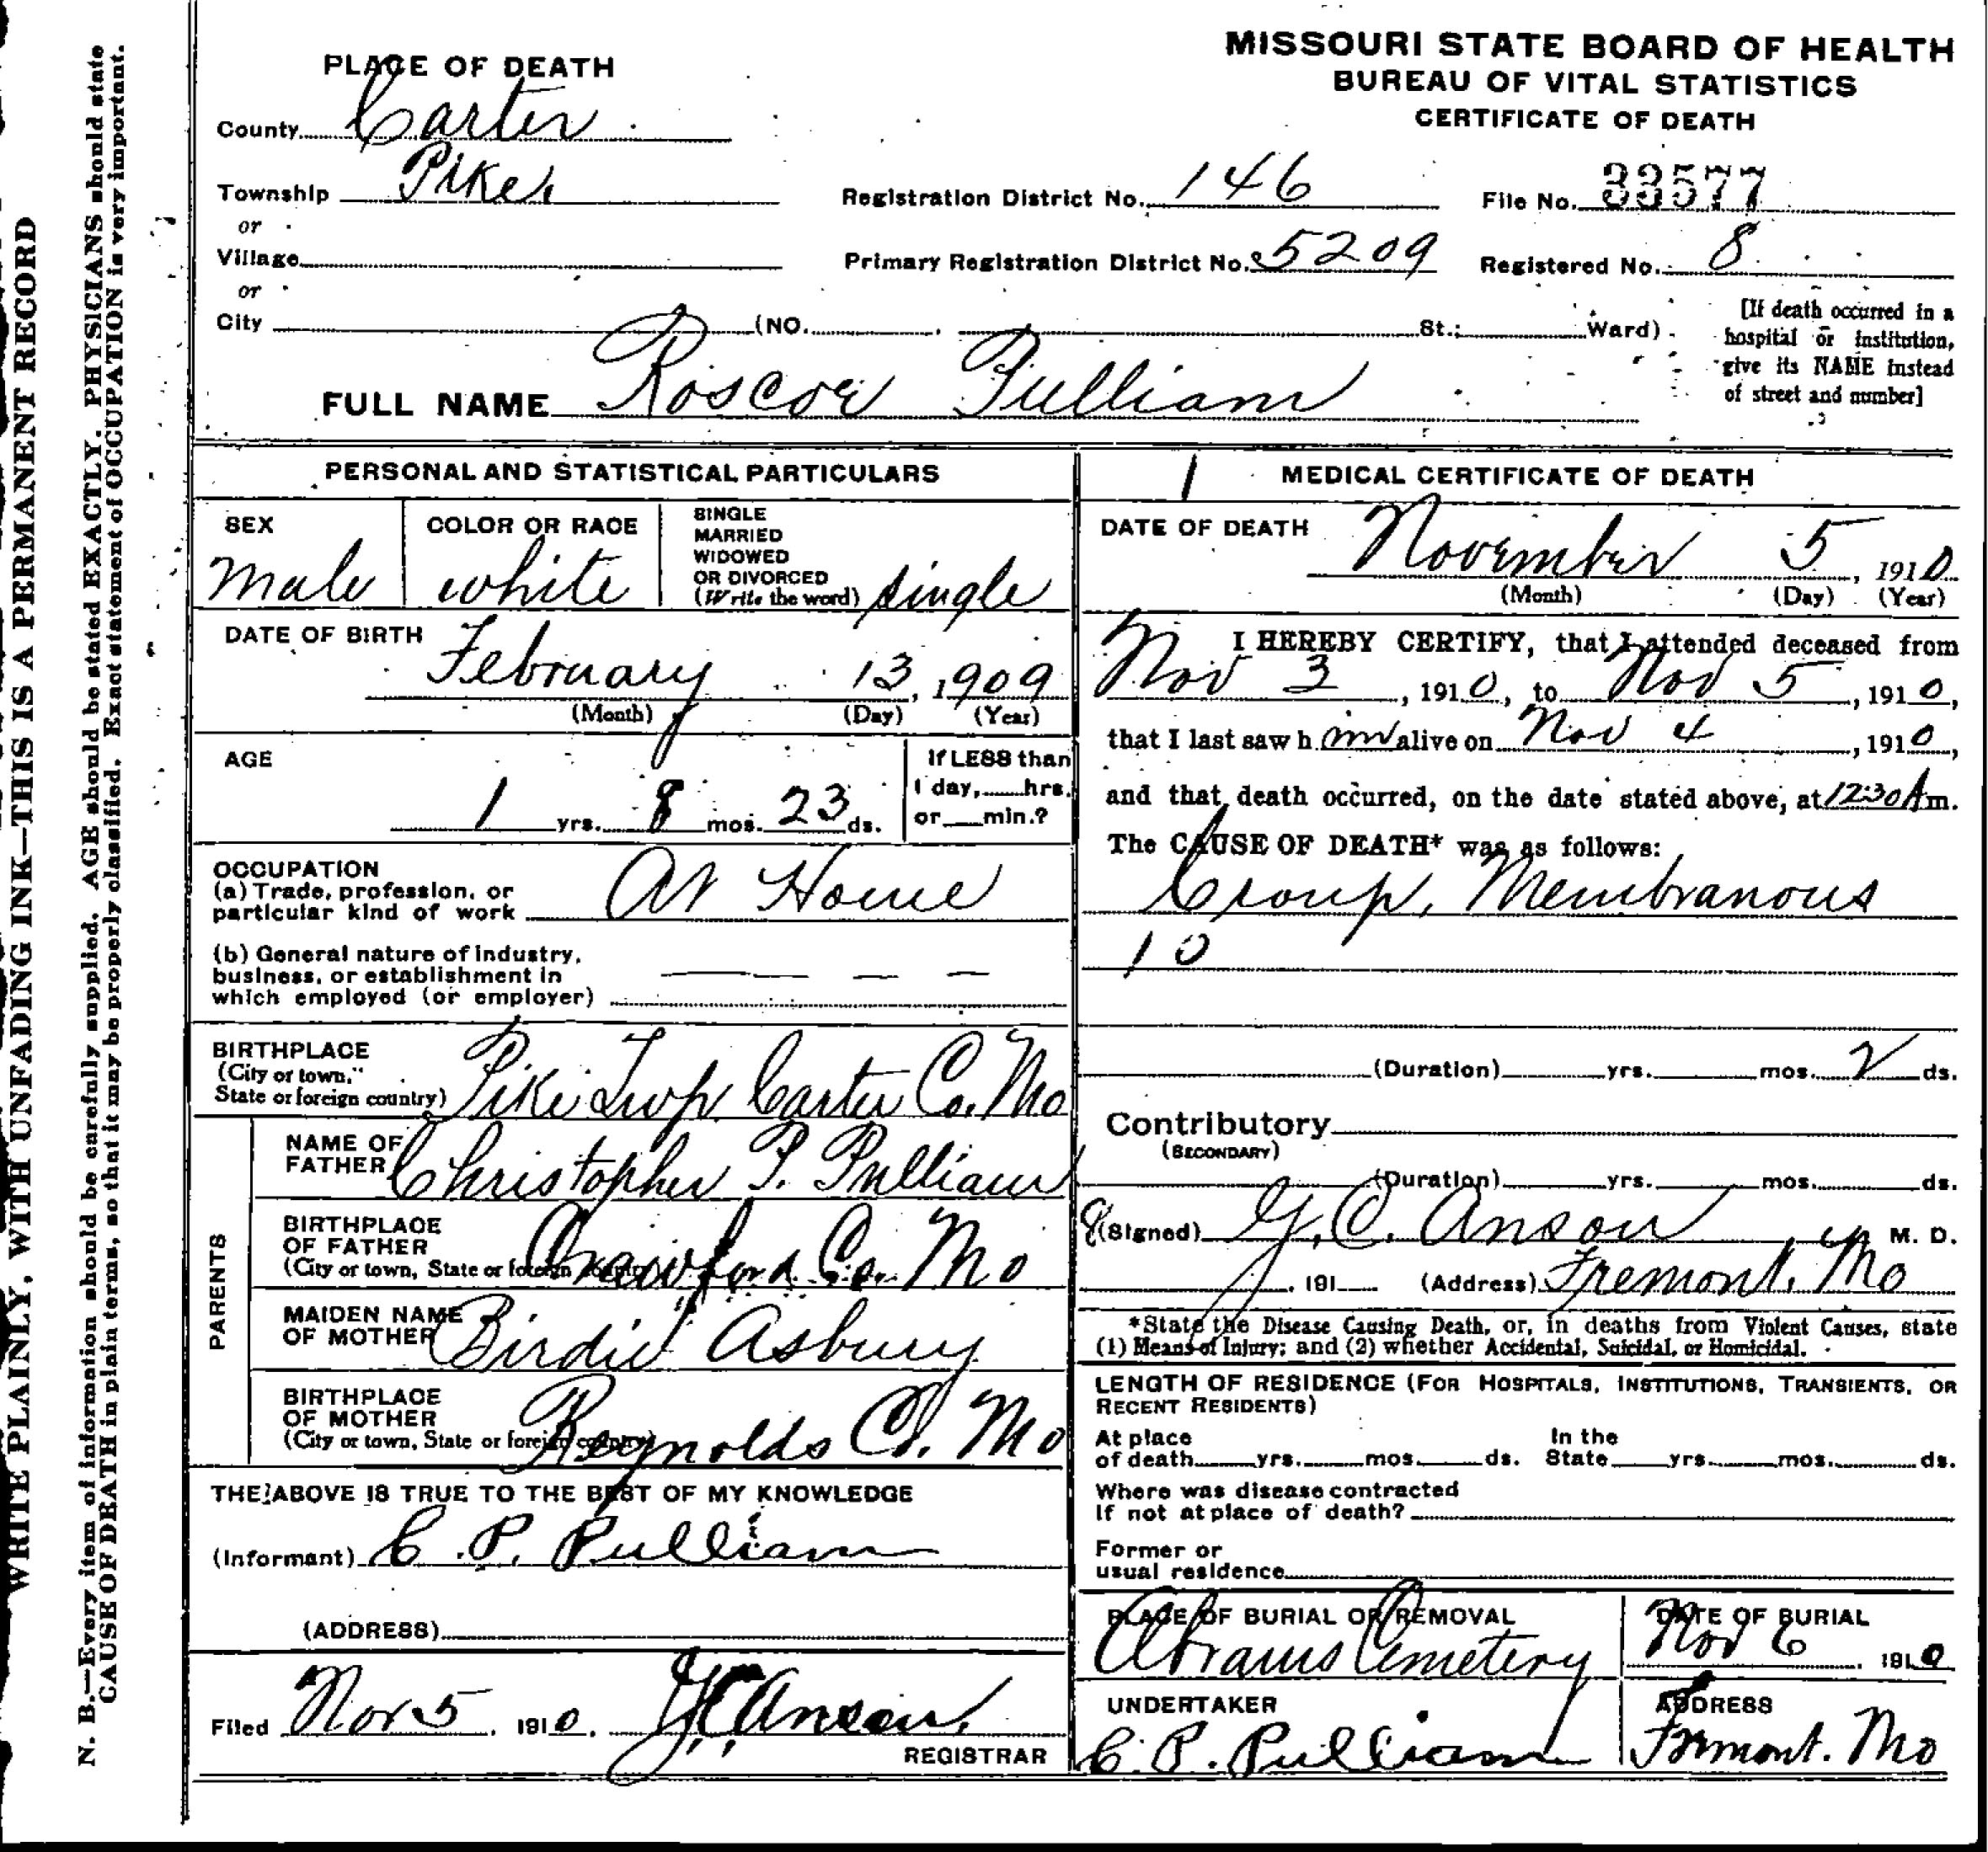 WRITE PLAINLY, WITH UNFADING INK—THIS IS A PERMANENT RECORD
N. B.—Every item of information should be carefully supplied. AGE should be stated EXACTLY. PHYSICIANS should state
CAUSE OF DEATH in plain terms, so that it may be properly classified. Exact statement of OCCUPATION is very important.
MISSOURI STATE BOARD OF HEALTH
BUREAU OF VITAL STATISTICS
CERTIFICATE OF DEATH
PLACE OF DEATH
County Carter
Township Pike
or
Village
or
City (NO. St.; Ward)
Registration District No. 146
File No. 33577
Primary Registration District No. 5209
Registered No. 8
[If death occurred in a
hospital or institution,
give its NAME instead
of street and number]
FULL NAME Roscoe Pulliam
PERSONAL AND STATISTICAL PARTICULARS
SEX
male
COLOR OR RACE
white
SINGLE
MARRIED
WIDOWED
OR DIVORCED
(Write the word) single
DATE OF BIRTH
February 13, 1909
(Month) (Day) (Year)
AGE
1 yrs. 8 mos. 23 ds.
If LESS than
1 day, hrs.
or min.?
OCCUPATION
(a) Trade, profession, or
particular kind of work At Home
(b) General nature of industry,
business, or establishment in
which employed (or employer) — — — —
BIRTHPLACE
(City or town,
State or foreign country) Pike Twp Carter Co. Mo
PARENTS
NAME OF
FATHER Christopher P. Pulliam
BIRTHPLACE
OF FATHER
(City or town, State or foreign country) Crawford Co. Mo
MAIDEN NAME
OF MOTHER Birdie Asbury
BIRTHPLACE
OF MOTHER
(City or town, State or foreign country) Reynolds Co. Mo
THE ABOVE IS TRUE TO THE BEST OF MY KNOWLEDGE
(Informant) C. P. Pulliam
(ADDRESS)
Filed Nov 5, 1910. J. C. Anson.
REGISTRAR
1 MEDICAL CERTIFICATE OF DEATH
DATE OF DEATH November 5, 1910
(Month) (Day) (Year)
I HEREBY CERTIFY, that I attended deceased from
Nov 3, 1910, to Nov 5, 1910,
that I last saw h im alive on Nov 4, 1910,
and that death occurred, on the date stated above, at 12:30 A m.
The CAUSE OF DEATH* was as follows:
Croup, Membranous
10
(Duration) yrs. mos. 2 ds.
Contributory
(SECONDARY)
(Duration) yrs. mos. ds.
(Signed) J. C. Anson, M. D.
, 191 (Address) Fremont, Mo
*State the Disease Causing Death, or, in deaths from Violent Causes, state
(1) Means of Injury; and (2) whether Accidental, Suicidal, or Homicidal.
LENGTH OF RESIDENCE (FOR HOSPITALS, INSTITUTIONS, TRANSIENTS, OR
RECENT RESIDENTS)
At place
of death yrs. mos. ds.
In the
State yrs. mos. ds.
Where was disease contracted
if not at place of death?
Former or
usual residence
PLACE OF BURIAL OR REMOVAL
Abrams Cemetery
DATE OF BURIAL
Nov 6, 1910
UNDERTAKER
C. P. Pulliam
ADDRESS
Fremont. Mo